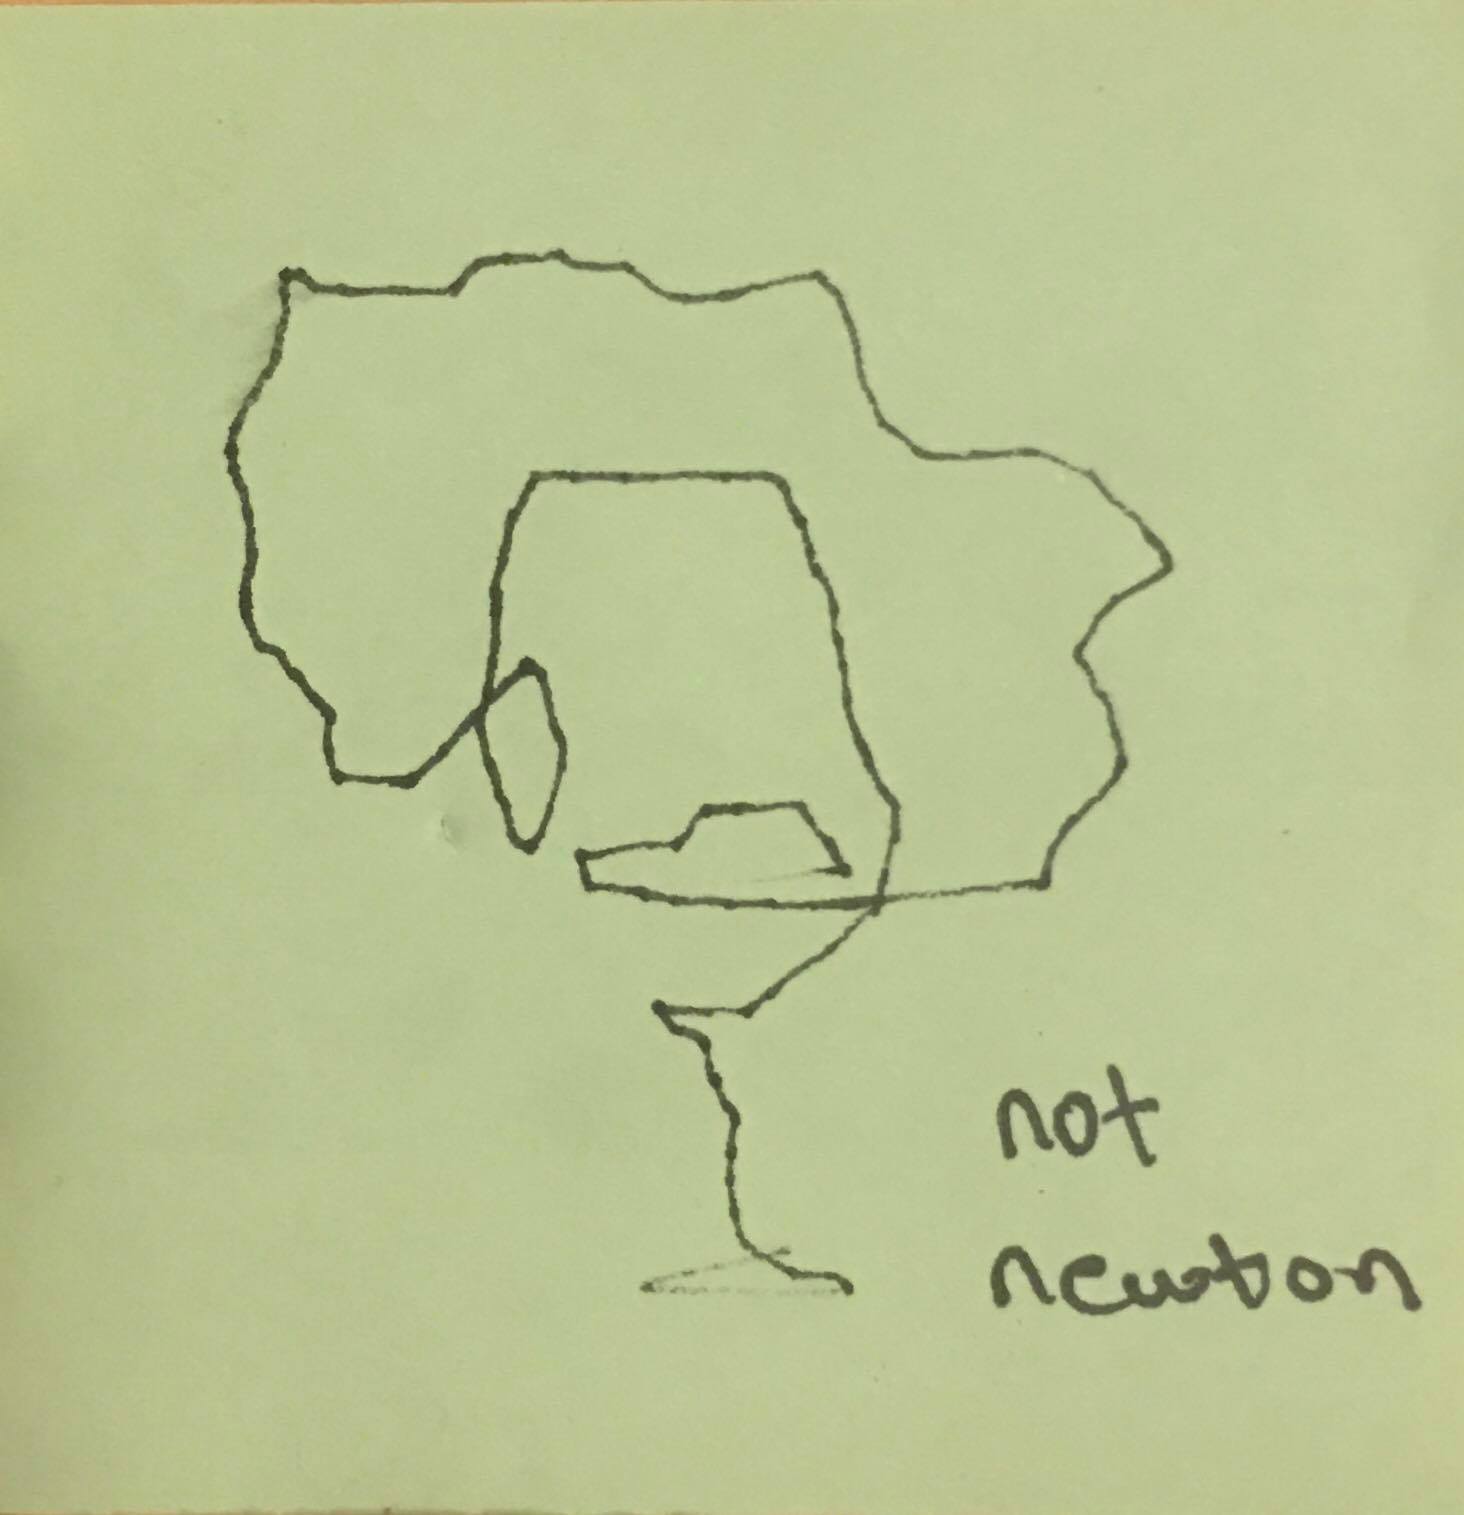 not
newton